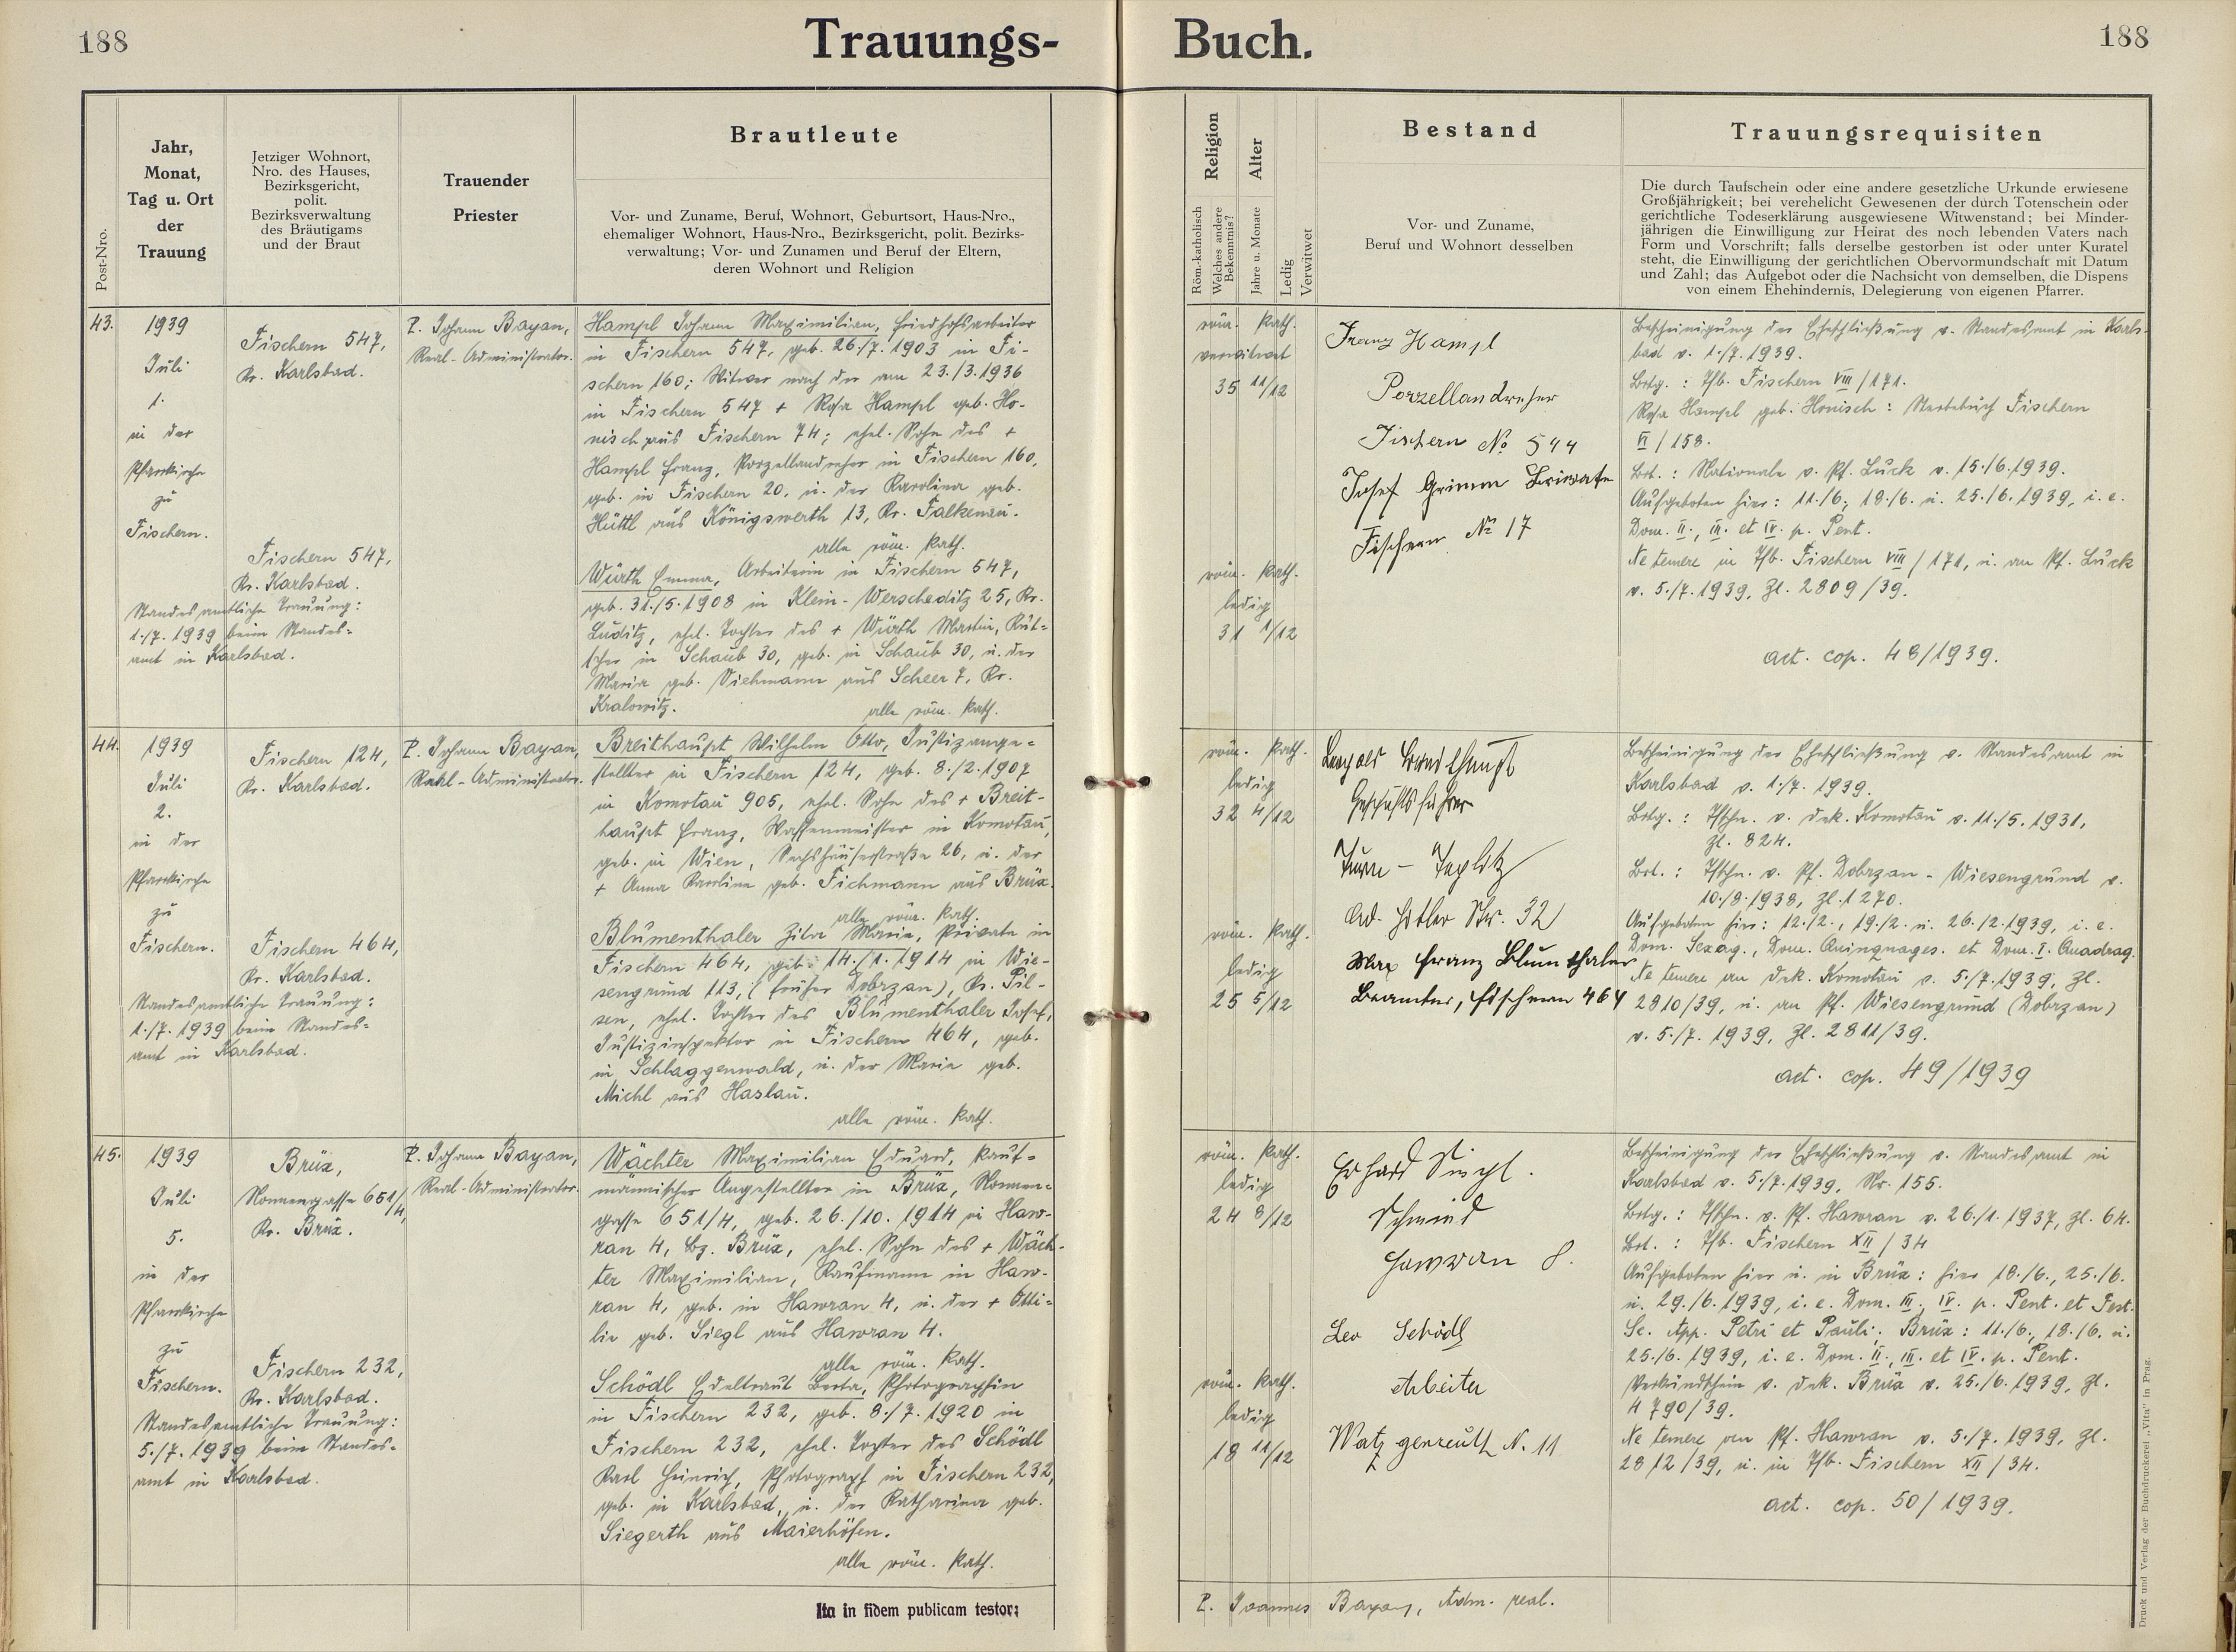 188
Trauungs-
Post-Nro.
Jahr,
Monat,
Tag u. Ort
der
Trauung
Jetziger Wohnort,
Nro. des Hauses,
Bezirksgericht,
polit.
Bezirksverwaltung
des Bräutigams
und der Braut
Trauender
Priester
Brautleute
Vor- und Zuname, Beruf, Wohnort, Geburtsort, Haus-Nro.,
ehemaliger Wohnort, Haus-Nro., Bezirksgericht, polit. Bezirks-
verwaltung; Vor- und Zunamen und Beruf der Eltern,
deren Wohnort und Religion
43.
1939
Juli
1.
in der
Pfarrkirche
zu
Fischern.
Fischern 547,
Kr. Karlsbad.
Fischern 547,
Kr. Karlsbad.
Standesamtliche Trauung:
1./7. 1939 beim Standes=
amt in Karlsbad.
P. Johann Bayan,
Real-Administrator.
Hampl Johann Maximilian, Friedhofsarbeiter
in Fischern 547, geb. 26./7. 1903 in Fi-
schern 160; Witwer nach der am 23./3.1936
in Fischern 547 + Rosa Hampl geb. Ho-
nisch aus Fischern 74; ehel. Sohn des +
Hampl Franz, Porzellandreher in Fischern 160,
geb. in Fischern 20, u. der Karolina geb.
Hüttl aus Königswerth 13, Kr. Falkenau.
alle röm. kath.
Würth Emma, Arbeiterin in Fischern 547,
geb. 31./5. 1908 in Klein-Werscheditz 25, Kr.
Luditz, ehel. Tochter des + Würth Martin, Kut=
scher in Schaub 30, geb. in Schaub 30, u. der
Maria geb. Viehmann aus Scheer 7, Kr.
Kralowitz.
alle röm. kath.
44.
1939
Juli
2.
in der
Pfarrkirche
zu
Fischern.
Fischern 124,
Kr. Karlsbad.
Fischern 464,
Kr. Karlsbad.
Standesamtliche Trauung:
1./7. 1939 beim Standes=
amt in Karlsbad.
P. Johann Bayan,
Real-Administrator.
Breithaupt Wilhelm Otto, Justizange=
stellter in Fischern 124, geb. 8./2. 1907
in Komotau 905, ehel. Sohn des + Breit-
haupt Franz, Waffenmeister in Komotau,
geb. in Wien, Sechshauserstraße 26, u. der
+ Anna Karolina geb. Fichmann aus Brüx.
alle röm. kath.
Blumenthaler Maria, Private in
Fischern 464, geb. 14./1. 1914 in Wie-
sengrund 113, (früher Dobrzan), Kr. Pil-
sen, ehel. Tochter des Blumenthaler Josef,
Justizinspektor in Fischern 464, geb.
in Schlaggenwald, u. der Maria geb.
Michl aus Haslau.
alle röm. kath.
45.
1939
Juli
5.
in der
Pfarrkirche
zu
Fischern.
Brüx,
Nonnengasse 651/4,
Kr. Brüx.
Fischern 232,
Kr. Karlsbad.
Standesamtliche Trauung:
5./7. 1939 beim Standes-
amt in Karlsbad.
P. Johann Bayan,
Real-Administrator.
Wächter Maximilian Eduard, kauf=
männischer Angestellter in Brüx, Nonnen=
gasse 651/4, geb. 26./10. 1914 in Haw-
ran 4, Bz. Brüx, ehel. Sohn des + Wäch-
ter Maximilian, Kaufmann in Haw-
ran 4, geb. in Hawran 4, u. der + Otti=
lie geb. Siegl aus Hawran 4.
alle röm. kath.
Schödl Edeltraut Berta, Photographin
in Fischern 232, geb. 8./7. 1920 in
Fischern 232, ehel. Tochter des Schödl
Karl Heinrich, Photograph in Fischern 232,
geb. in Karlsbad, u. der Katharina geb.
Siegerth aus Maierhöfen.
alle röm. kath.
Ita in fidem publicam testor:
Buch.
188
Religion
Röm.-katholisch
Welches andere
Bekenntnis?
Alter
Jahre u. Monate
Ledig
Verwitwet
Bestand
Vor- und Zuname,
Beruf und Wohnort desselben
Trauungsrequisiten
Die durch Taufschein oder eine andere gesetzliche Urkunde erwiesene
Großjährigkeit; bei verehelicht Gewesenen der durch Totenschein oder
gerichtliche Todeserklärung ausgewiesene Witwenstand; bei Minder-
jährigen die Einwilligung zur Heirat des noch lebenden Vaters nach
Form und Vorschrift; falls derselbe gestorben ist oder unter Kuratel
steht, die Einwilligung der gerichtlichen Obervormundschaft mit Datum
und Zahl; das Aufgebot oder die Nachsicht von demselben, die Dispens
von einem Ehehindernis, Delegierung von eigenen Pfarrer.
röm. kath.
verwitwet
35 11/12
röm. kath.
ledig
31 1/12
Franz Hampl
Porzellandreher
Fischern No 544
Josef Grimm
Fischern No 17
Bescheinigung der Eheschließung v. Standesamt in Karls-
bad v. 1./7. 1939.
Brtg.: Tfb. Fischern VIII/171.
Rosa Hampl geb. Honisch: Sterbebuch Fischern
VI/158.
Brt.: Nationale v. Pf. Luck v. 15./6.1939.
Aufgeboten hier: 11./6., 18./6. u. 25./6. 1939, i. e.
Dom. II., III. et IV. p. Pent.
Ne temere in Tfb. Fischern VIII/171, u. an Pf. Luck
v. 5./7. 1939, Zl. 2809/39.
act. cop. 48/1939.
röm. kath.
ledig
32 4/12
röm. kath.
ledig
25 5/12
Leopold Breithaupt
Geschäftsführer
Turn – Teplitz
Ad. Hitler Str. 32
Max Franz Blumenthaler
Beamter, Fischern 464
Bescheinigung der Eheschließung v. Standesamt in
Karlsbad v. 1./7. 1939.
Brtg.: Tfschn. v. Dek. Komotau v. 11./5. 1931,
Zl. 824.
Brt.: Tfschn. v. Pf. Dobrzan – Wiesengrund v.
10./8. 1938, Zl. 1270.
Aufgeboten hier: 12./2., 19./2. u. 26./2. 1939, i. e.
Dom. Sexag., Dom. Quinquages. et Dom. I. Quadrag.
Ne temere an Dek. Komotau v. 5./7. 1939, Zl.
2810/39, u. an Pf. Wiesengrund (Dobrzan)
v. 5./7. 1939, Zl. 2811/39.
act. cop. 49/1939
röm. kath.
ledig
24 8/12
röm. kath.
ledig
18 11/12
Erhard Siegl.
Schmied
Hawran 8.
Leo Schödl
Arbeiter
Watzgenreuth N. 11
Bescheinigung der Eheschließung v. Standesamt in
Karlsbad v. 5./7. 1939, Nr. 155.
Brtg.: Tfschn. v. Pf. Hawran v. 26./1. 1937, Zl. 64.
Brt.: Tfb. Fischern XII/34
Aufgeboten hier u. in Brüx: hier 18./6., 25./6.
u. 29./6. 1939, i. e. Dom. III., IV. p. Pent. et Fest.
Sc. App. Petri et Pauli; Brüx: 11./6., 18./6. u.
25./6. 1939, i. e. Dom. II., III. et IV. p. Pent.
Verkündschein v. Dek. Brüx v. 25./6. 1939, Zl.
4790/39.
Ne temere an Pf. Hawran v. 5./7. 1939, Zl.
2812/39, u. in Tfb. Fischern XII/34.
act. cop. 50/1939.
P. Joannes Bayan, Adm. real.
Druck und Verlag der Buchdruckerei „Vita" in Prag.